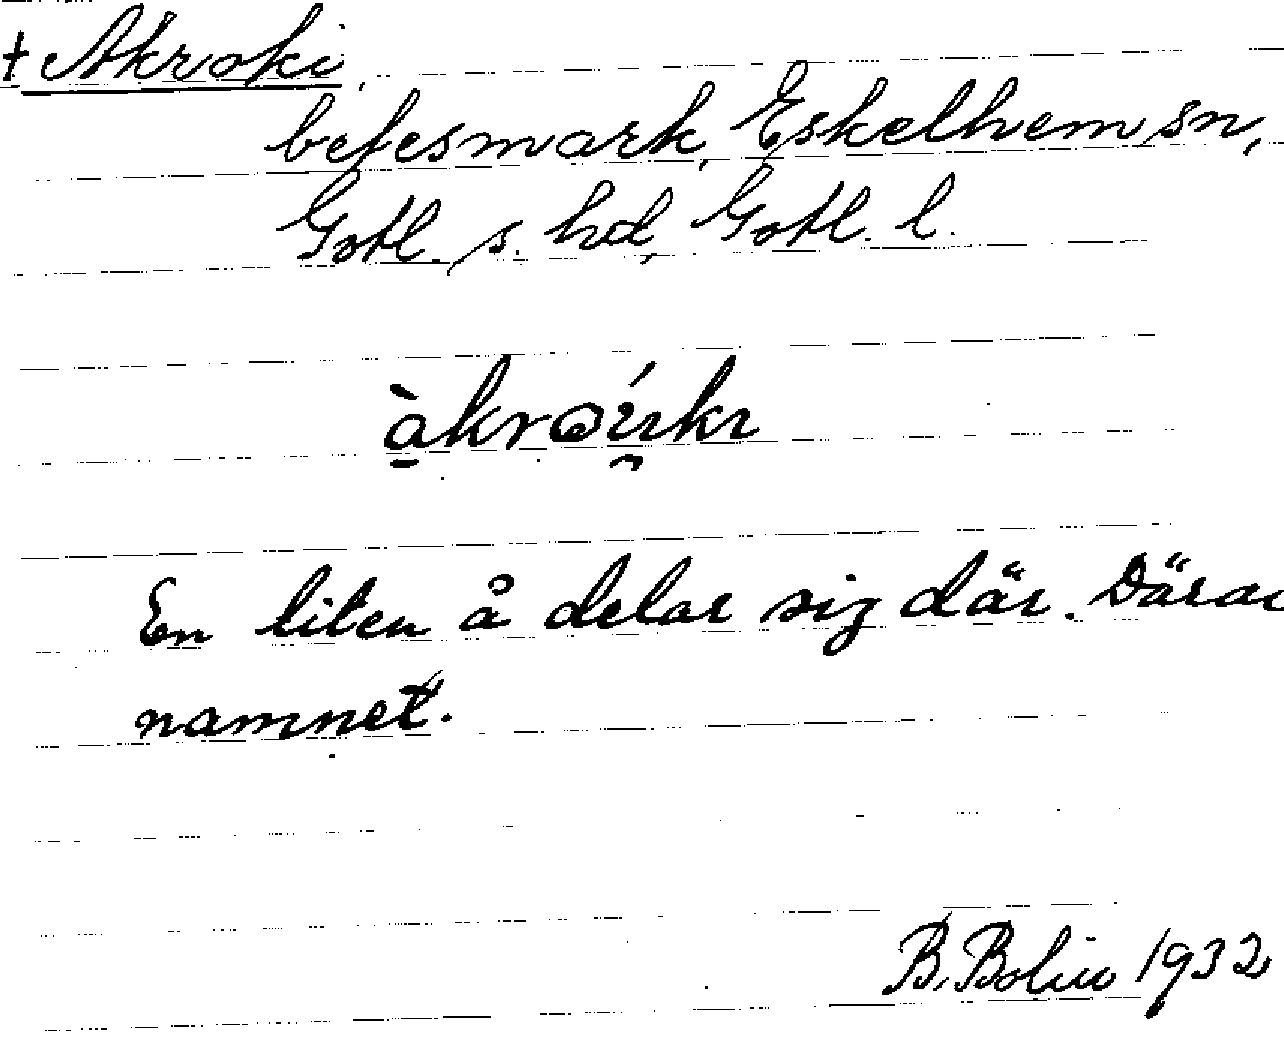 † Akroki,
betesmark, Eskelhem sn,
Gotl. s. hd, Gotl. l.
En liten å delar sig där. Därav
namnet.
B. Bolin 1932